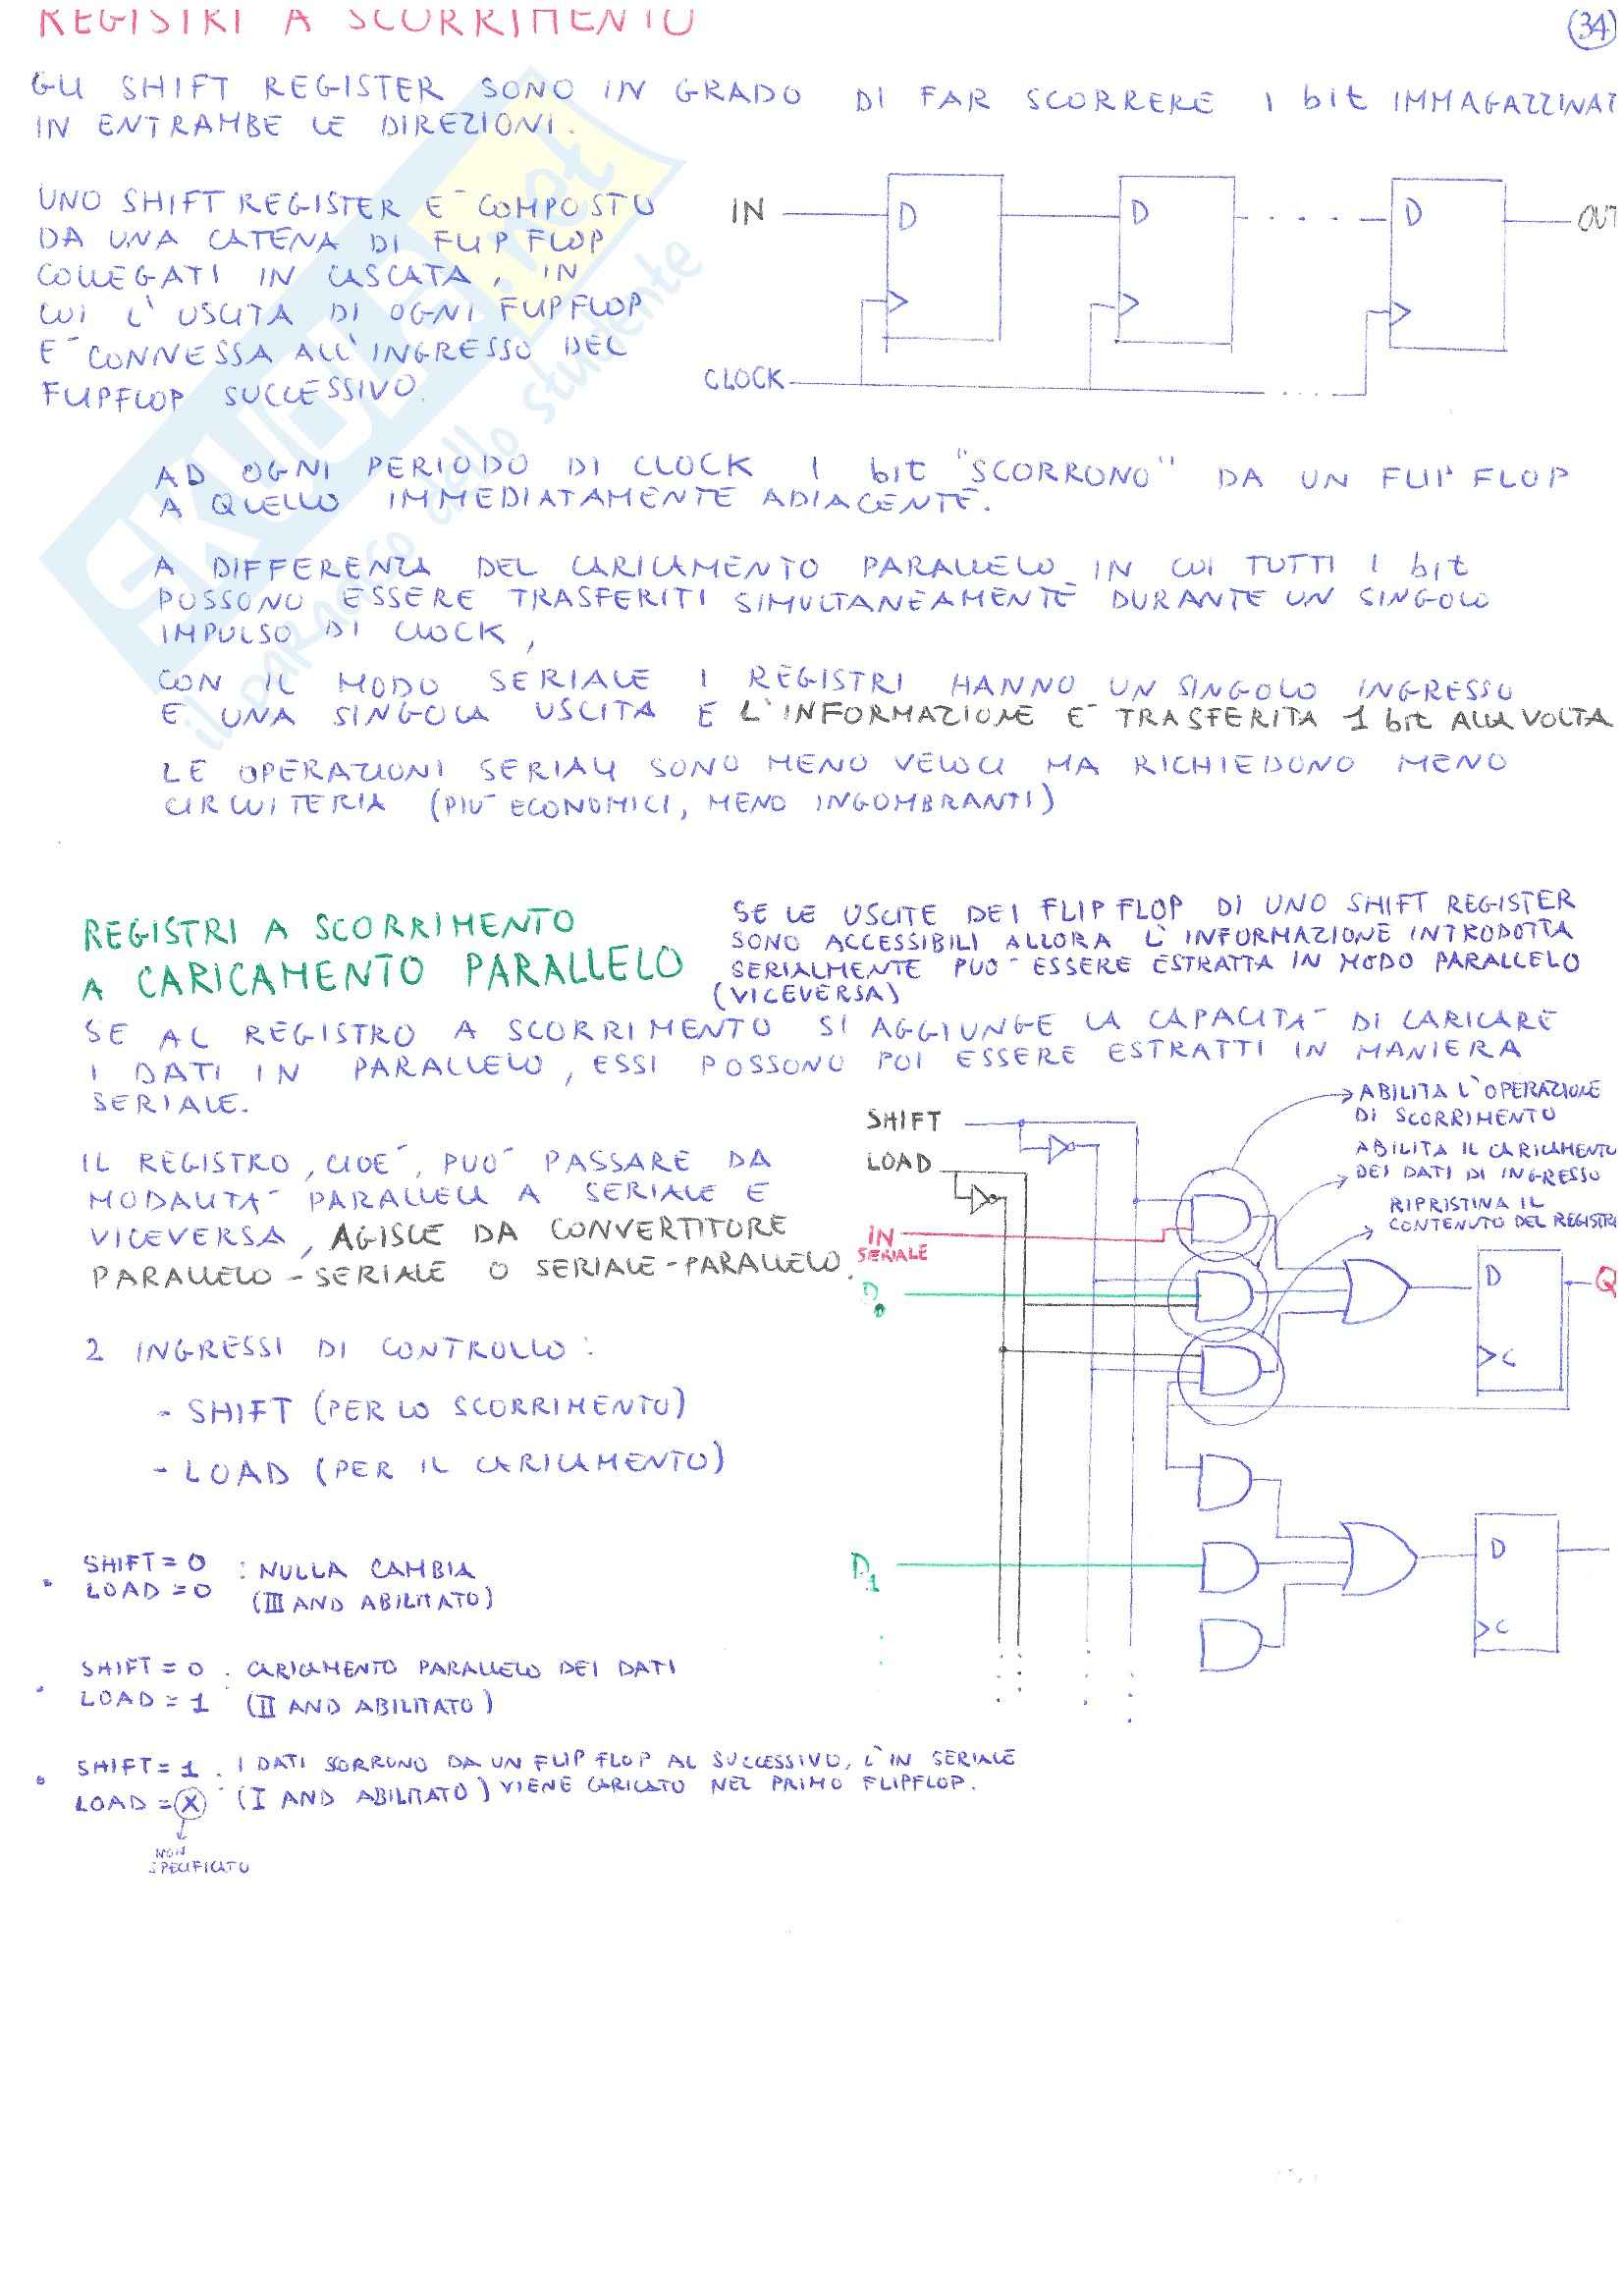 REGISTRI A SCORRIMENTO
(34)
GLI SHIFT REGISTER SONO IN GRADO DI FAR SCORRERE I bit IMMAGAZZINATI
IN ENTRAMBE LE DIREZIONI.
UNO SHIFT REGISTER E' COMPOSTO
DA UNA CATENA DI FLIP FLOP
COLLEGATI IN CASCATA, IN
CUI L'USCITA DI OGNI FLIPFLOP
E' CONNESSA ALL'INGRESSO DEL
FLIPFLOP SUCCESSIVO.
IN
D
D
D
OUT
CLOCK
AD OGNI PERIODO DI CLOCK I bit "SCORRONO" DA UN FLIP FLOP
A QUELLO IMMEDIATAMENTE ADIACENTE.
A DIFFERENZA DEL CARICAMENTO PARALLELO IN CUI TUTTI I bit
POSSONO ESSERE TRASFERITI SIMULTANEAMENTE DURANTE UN SINGOLO
IMPULSO DI CLOCK,
CON IL MODO SERIALE I REGISTRI HANNO UN SINGOLO INGRESSO
E UNA SINGOLA USCITA E L'INFORMAZIONE E' TRASFERITA 1 bit ALLA VOLTA
LE OPERAZIONI SERIALI SONO MENO VELOCI MA RICHIEDONO MENO
CIRCUITERIA (PIU' ECONOMICI, MENO INGOMBRANTI)
SKUOLA.net
il paradiso dello studente
REGISTRI A SCORRIMENTO
A CARICAMENTO PARALLELO
SE LE USCITE DEI FLIP FLOP DI UNO SHIFT REGISTER
SONO ACCESSIBILI ALLORA L'INFORMAZIONE INTRODOTTA
SERIALMENTE PUO' ESSERE ESTRATTA IN MODO PARALLELO
(VICEVERSA)
SE AL REGISTRO A SCORRIMENTO SI AGGIUNGE LA CAPACITA' DI CARICARE
I DATI IN PARALLELO, ESSI POSSONO POI ESSERE ESTRATTI IN MANIERA
SERIALE.
IL REGISTRO, CIOE', PUO' PASSARE DA
MODALITA' PARALLELA A SERIALE E
VICEVERSA, AGISCE DA CONVERTITORE
PARALLELO-SERIALE O SERIALE-PARALLELO.
2 INGRESSI DI CONTROLLO:
- SHIFT (PER LO SCORRIMENTO)
- LOAD (PER IL CARICAMENTO)
SHIFT
LOAD
IN
SERIALE
D0
D1
ABILITA L'OPERAZIONE
DI SCORRIMENTO
ABILITA IL CARICAMENTO
DEI DATI DI INGRESSO
RIPRISTINA IL
CONTENUTO DEL REGISTRO
D
C
Q
D
C
• SHIFT = 0 : NULLA CAMBIA
LOAD = 0 (III AND ABILITATO)
• SHIFT = 0 : CARICAMENTO PARALLELO DEI DATI
LOAD = 1 (II AND ABILITATO)
• SHIFT = 1 : I DATI SORRONO DA UN FLIP FLOP AL SUCCESSIVO, L'IN SERIALE
LOAD = X (I AND ABILITATO) VIENE CARICATO NEL PRIMO FLIPFLOP.
NON
SPECIFICATO